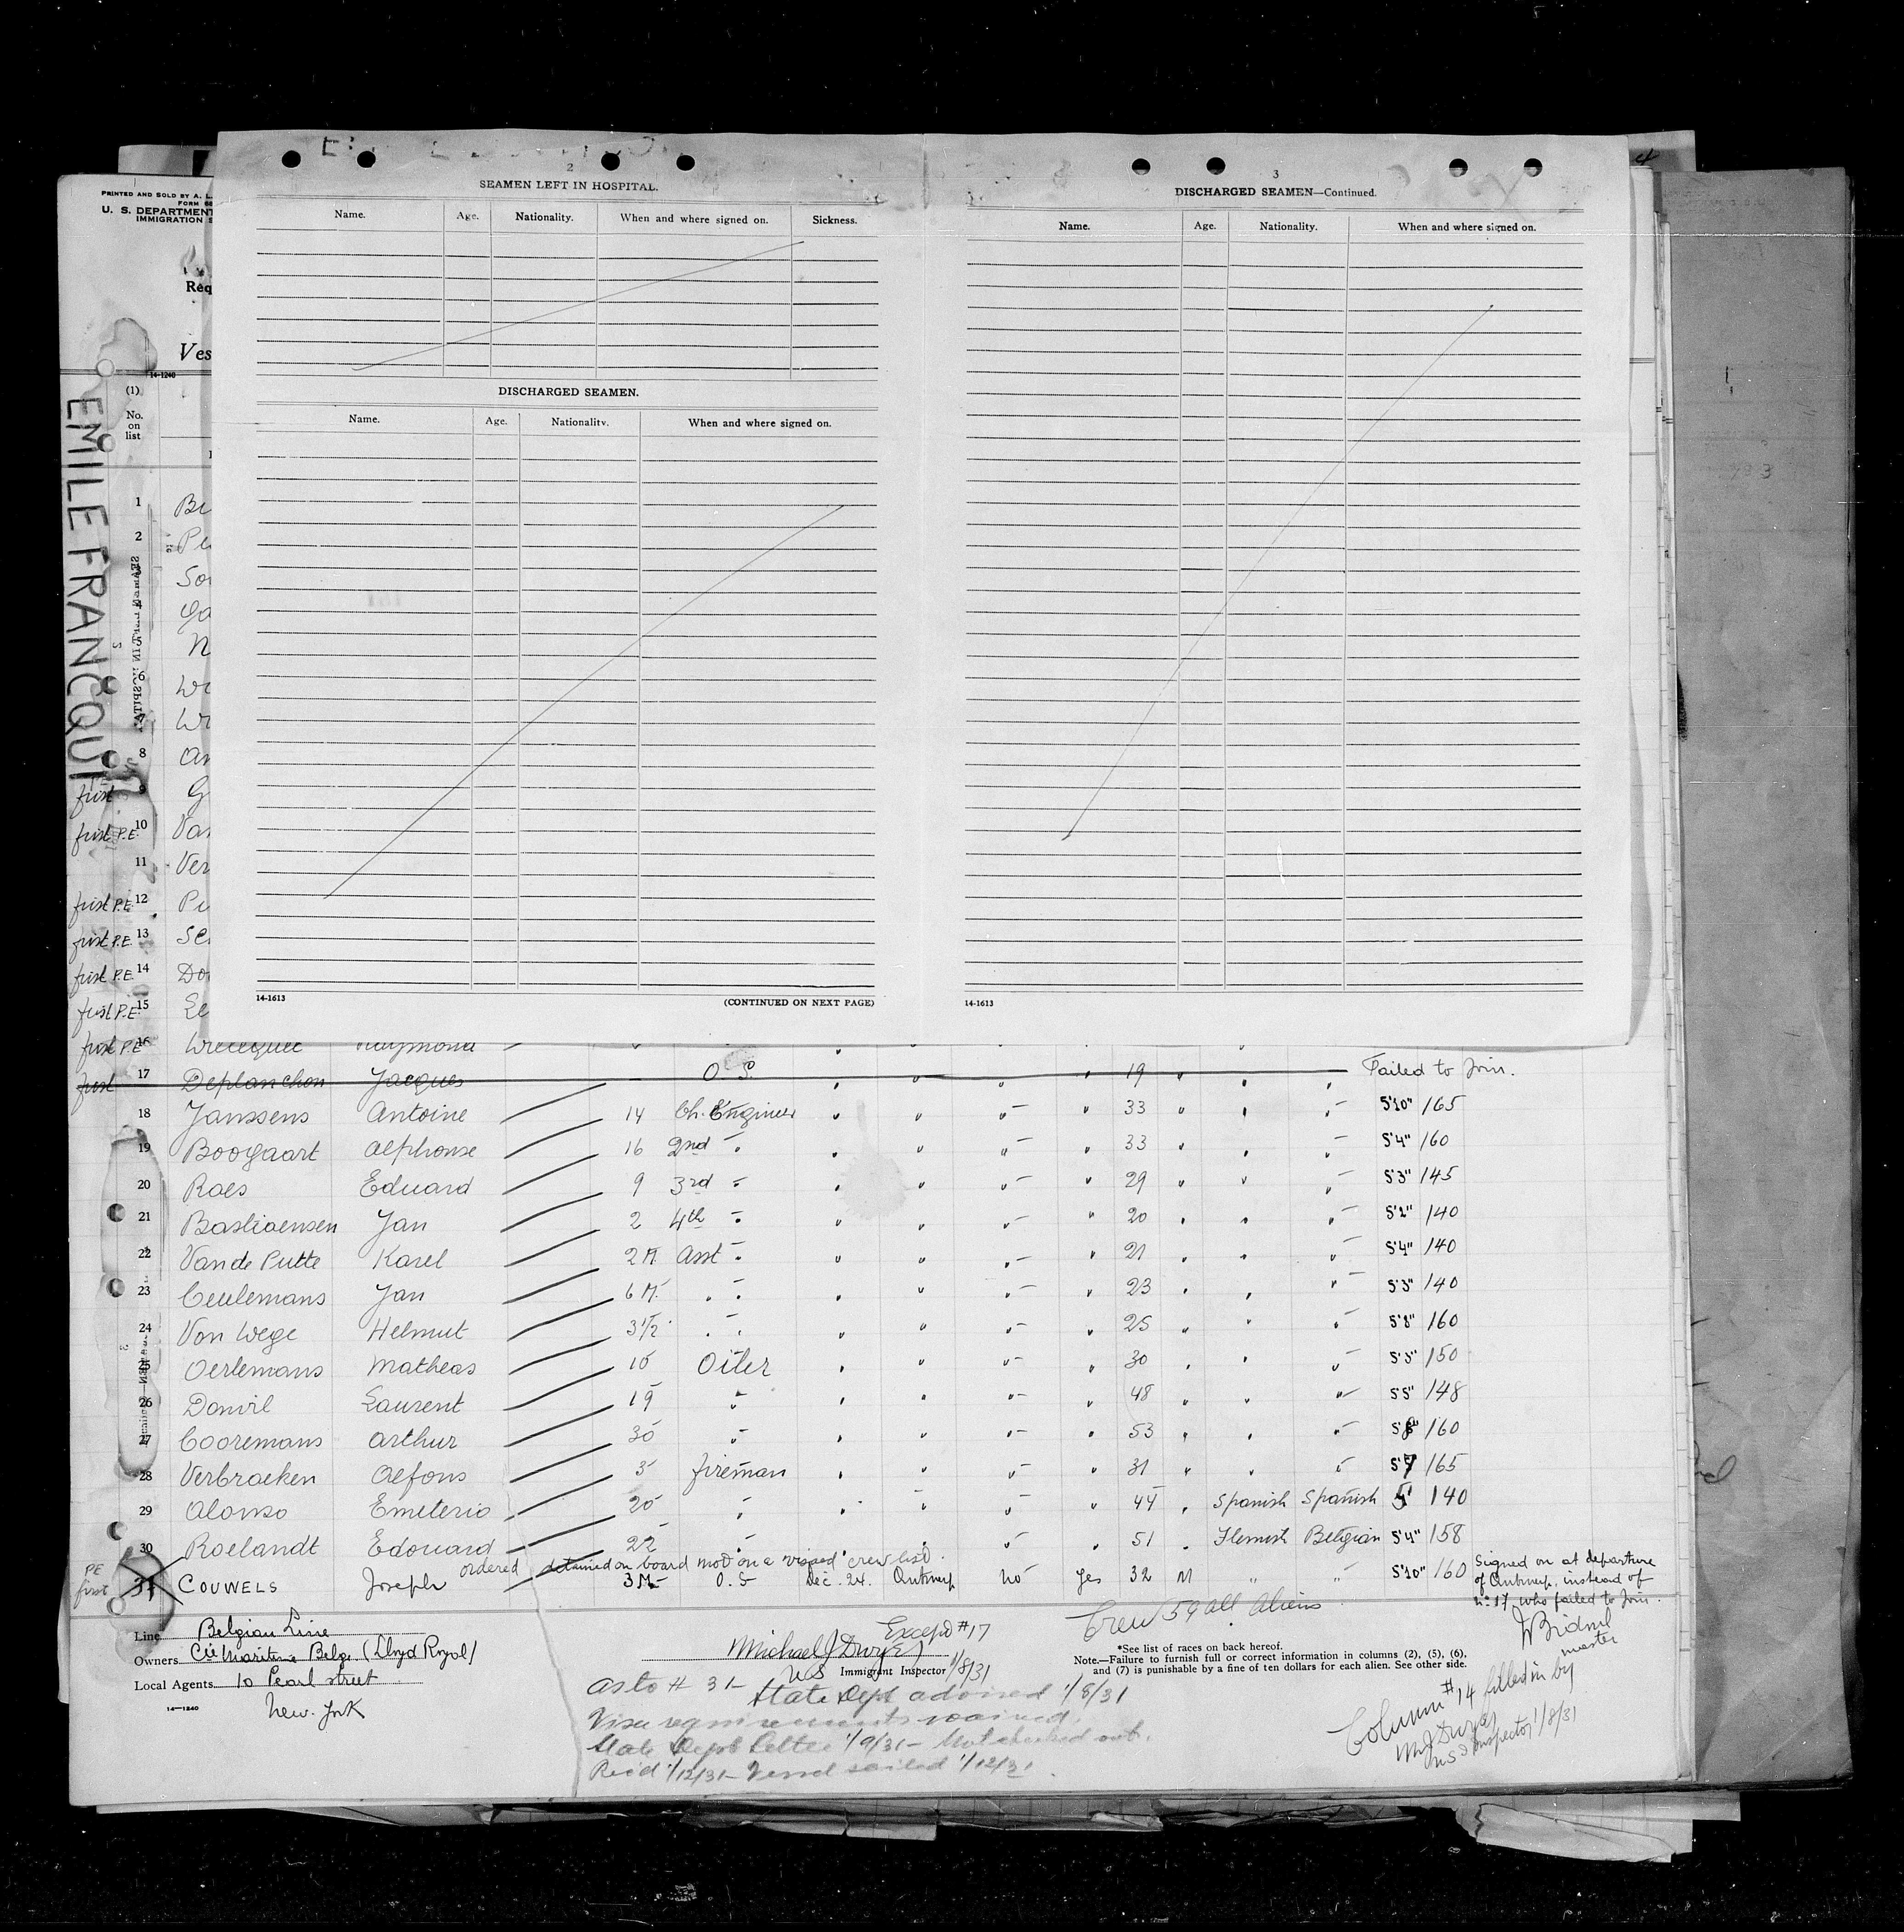 2
SEAMEN LEFT IN HOSPITAL.
Name. Age. Nationality. When and where signed on. Sickness.
DISCHARGED SEAMEN.
Name. Age. Nationality. When and where signed on.
14-1613 (CONTINUED ON NEXT PAGE)
3
DISCHARGED SEAMEN—Continued.
Name. Age. Nationality. When and where signed on.
14-1613
4
PRINTED AND SOLD BY A. L.
FORM
U. S. DEPARTMENT
IMMIGRATION S
Req
Ves
14-1240
EMILE FRANCQUI
(1)
No.
on
list
1
2
3
4
5
6
7
8
first 9
first P.E. 10 Van
11 Ver
first P.E. 12
first P.E. 13
first P.E. 14
first P.E. 15
first P.E. 16 Raymond
first 17 Deplanchon Jacques O. S. 19 Failed to Join.
18 Janssens Antoine 14 Ch. Engineer 33 5'10" 165
19 Boogaart Alphonse 16 2nd " 33 5'4" 160
20 Raes Eduard 9 3rd " 29 5'3" 145
21 Bastiaensen Jan 2 4th " 20 5'2" 140
22 Van de Putte Karel 2 M. Asst " 21 5'4" 140
23 Ceulemans Jan 6 M. " " 23 5'3" 140
24 Von Wege Helmut 3 1/2 " " 25 5'8" 160
25 Oerlemans Matheas 10 Oiler 30 5'5" 150
26 Danvil Laurent 19 " 48 5'5" 148
27 Cooremans Arthur 30 " 53 160
28 Verbraeken Alfons 3 fireman 31 165
29 Alonso Emeterio 20 " 44 Spanish Spanish 140
30 Roelandt Edouard 22 " 51 Flemish Belgian 5'4" 158
ordered detained on board not on a visaed crew list.
PE first 31 COUWELS Joseph 3 M. O. S Dec. 24. Antwerp no yes 32 M " " 5'10" 160
Signed on at departure
of Antwerp, instead of
No. 17, who failed to Join.
master
Line Belgian Line
Owners Cie Maritime Belge (Lloyd Royal)
Local Agents 10 Pearl street
New. York
14—1240
Except #17
Michael J Dwyer
US Immigrant Inspector 1/8/31
Crew 59 all Aliens
*See list of races on back hereof.
Note.—Failure to furnish full or correct information in columns (2), (5), (6),
and (7) is punishable by a fine of ten dollars for each alien. See other side.
As to # 31- State Dept advised 1/8/31
Visa requirements waived.
State Dept Letter 1/9/31 - Not checked out.
Rec'd 1/12/31 - Vessel sailed 1/12/31.
Column #14 filled in by
MJ Dwyer
US Inspector 1/8/31